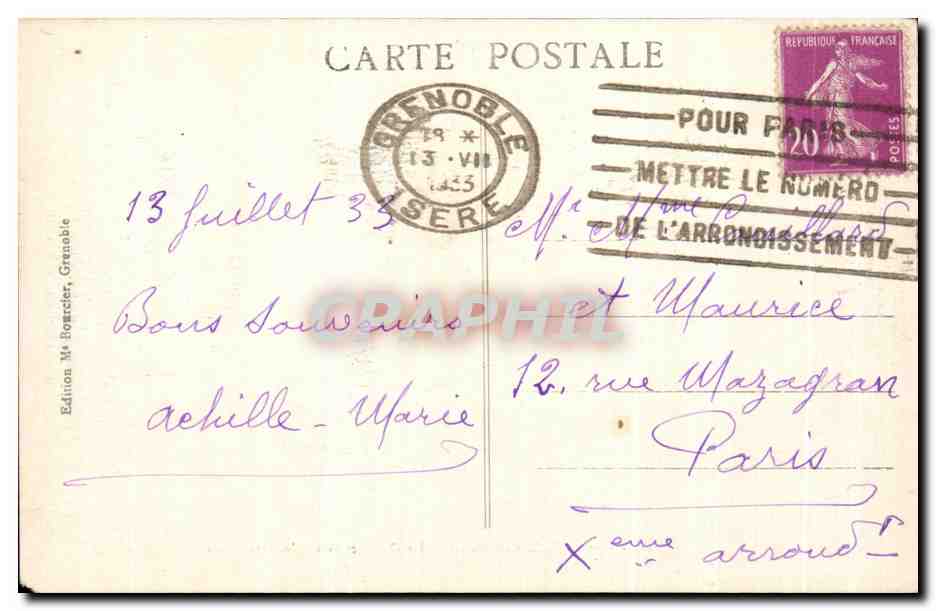 CARTE POSTALE
REPUBLIQUE FRANÇAISE
20
POSTES
GRENOBLE
18 *
13 · VII
1933
ISERE
POUR PARIS
METTRE LE NUMERO
DE L'ARRONDISSEMENT
13 Juillet 33
Bons souvenirs
Achille - Marie
Mr. Mme
et Maurice
12, rue Mazagran
Paris
Xeme arrondt
Edition Ms Bourcier, Grenoble
CPAPHIL